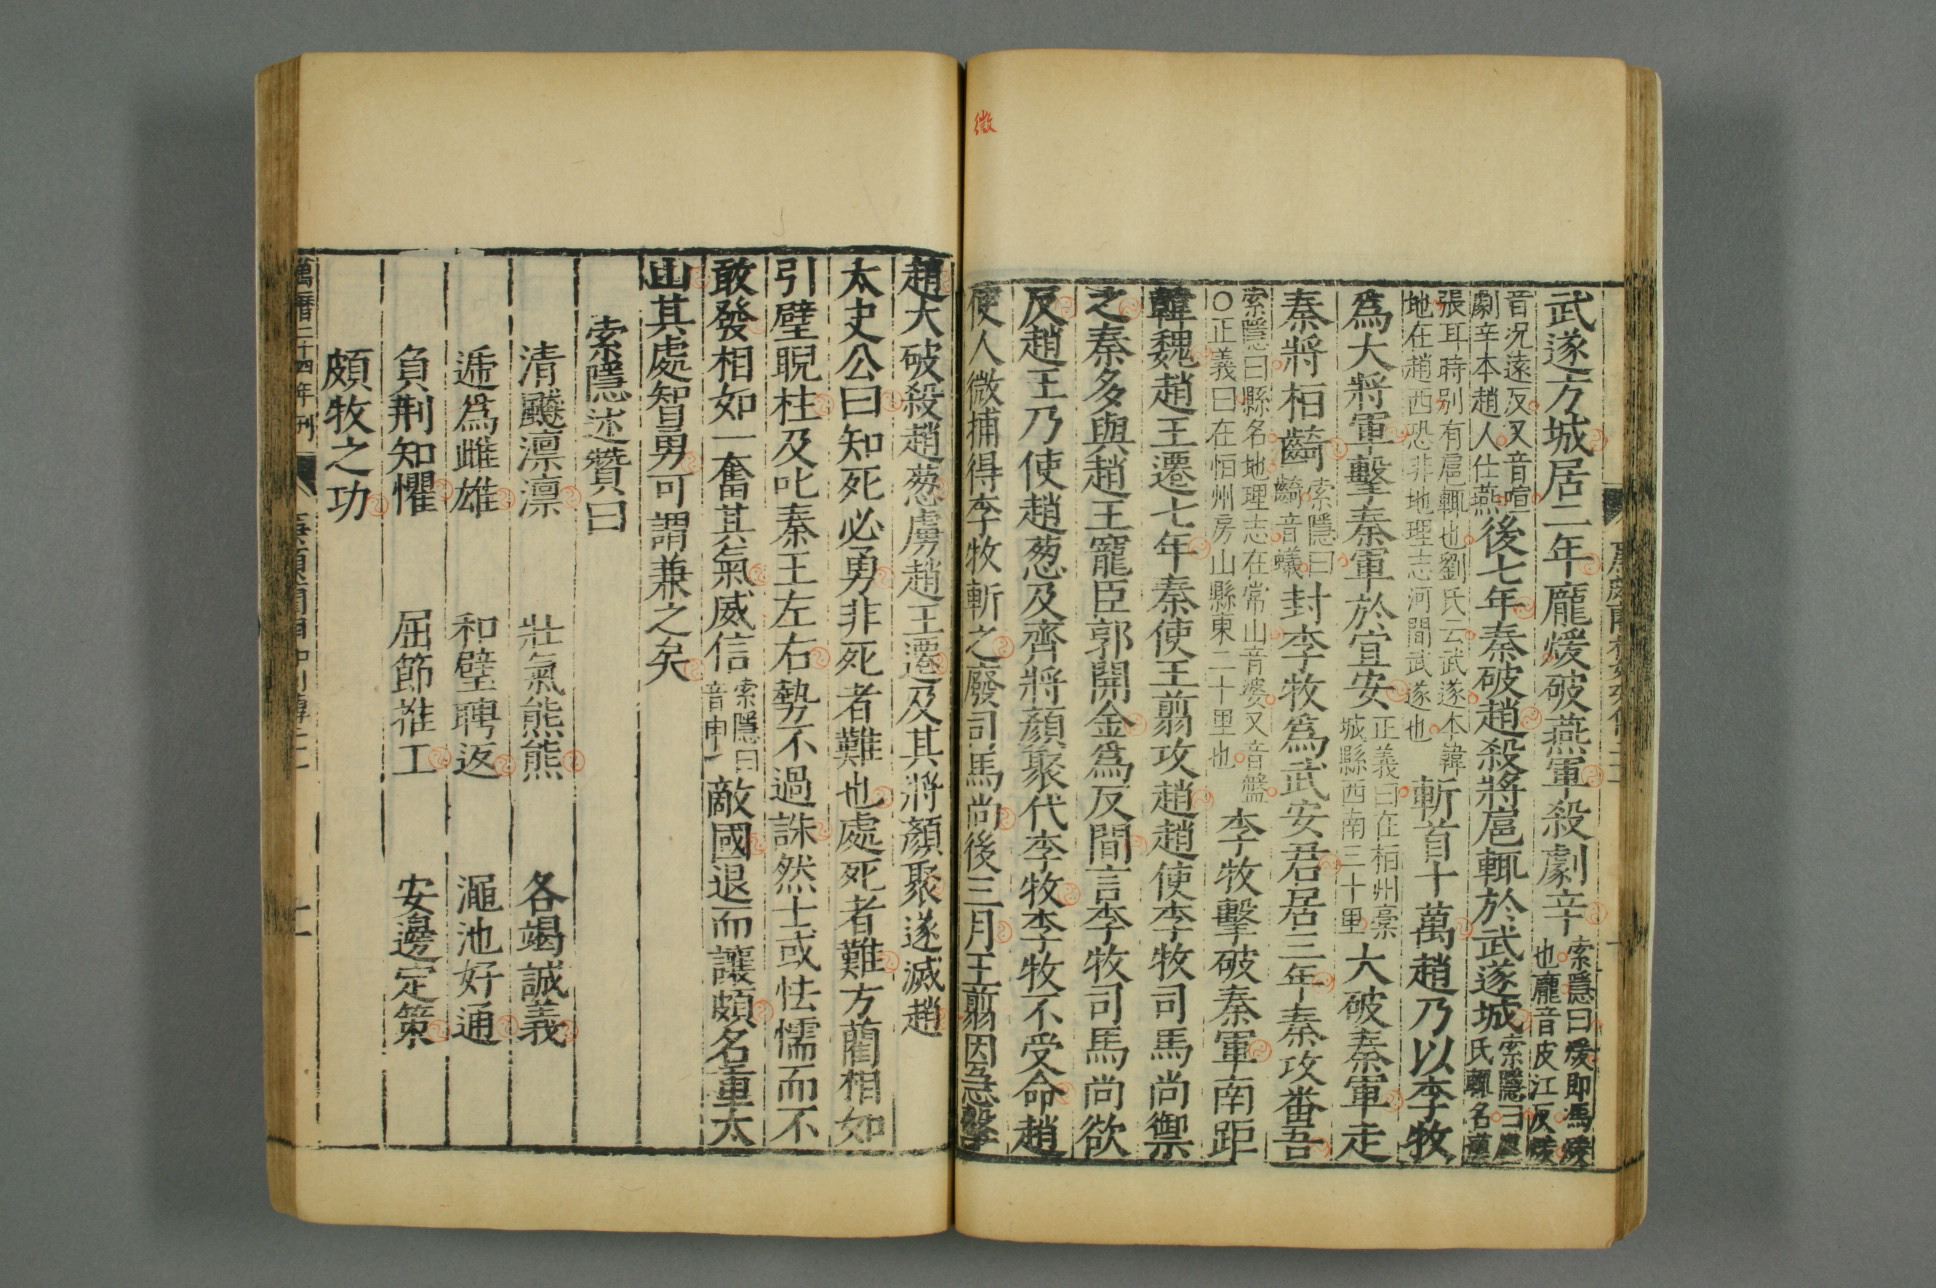 徵
武遂方城居二年龐煖破燕軍殺劇辛索隱曰煖即馮煖
也龐音皮江反煖
音況遠反又音喧
劇辛本趙人仕燕後七年秦破趙殺將扈輒於武遂城索隱曰扈
氏輒名漢
張耳時别有扈輒也劉氏云武遂本韓
地在趙西恐非地理志河間武遂也斬首十萬趙乃以李牧
爲大將軍擊秦軍於宜安正義曰在桓州槀
城縣西南三十里大破秦軍走
秦將桓齮索隱曰
齮音蟻封李牧爲武安君居三年秦攻番吾
索隱曰縣名地理志在常山音婆又音盤
○正義曰在恒州房山縣東二十里也李牧擊破秦軍南距
韓魏趙王遷七年秦使王翦攻趙趙使李牧司馬尚禦
之秦多與趙王寵臣郭開金爲反間言李牧司馬尚欲
反趙王乃使趙葱及齊將顔聚代李牧李牧不受命趙
使人微捕得李牧斬之廢司馬尚後三月王翦因急擊
趙大破殺趙葱虜趙王遷及其將顔聚遂滅趙
太史公曰知死必勇非死者難也處死者難方藺相如
引璧睨柱及叱秦王左右勢不過誅然士或怯懦而不
敢發相如一奮其氣威信索隱曰
音申敵國退而讓頗名重太
山其處智勇可謂兼之矣
索隱述贊曰
清飈凛凛 壯氣熊熊 各竭誠義
遞爲雌雄 和璧聘返 澠池好通
負荆知懼 屈節推工 安邊定策
頗牧之功
萬曆二十四年刊